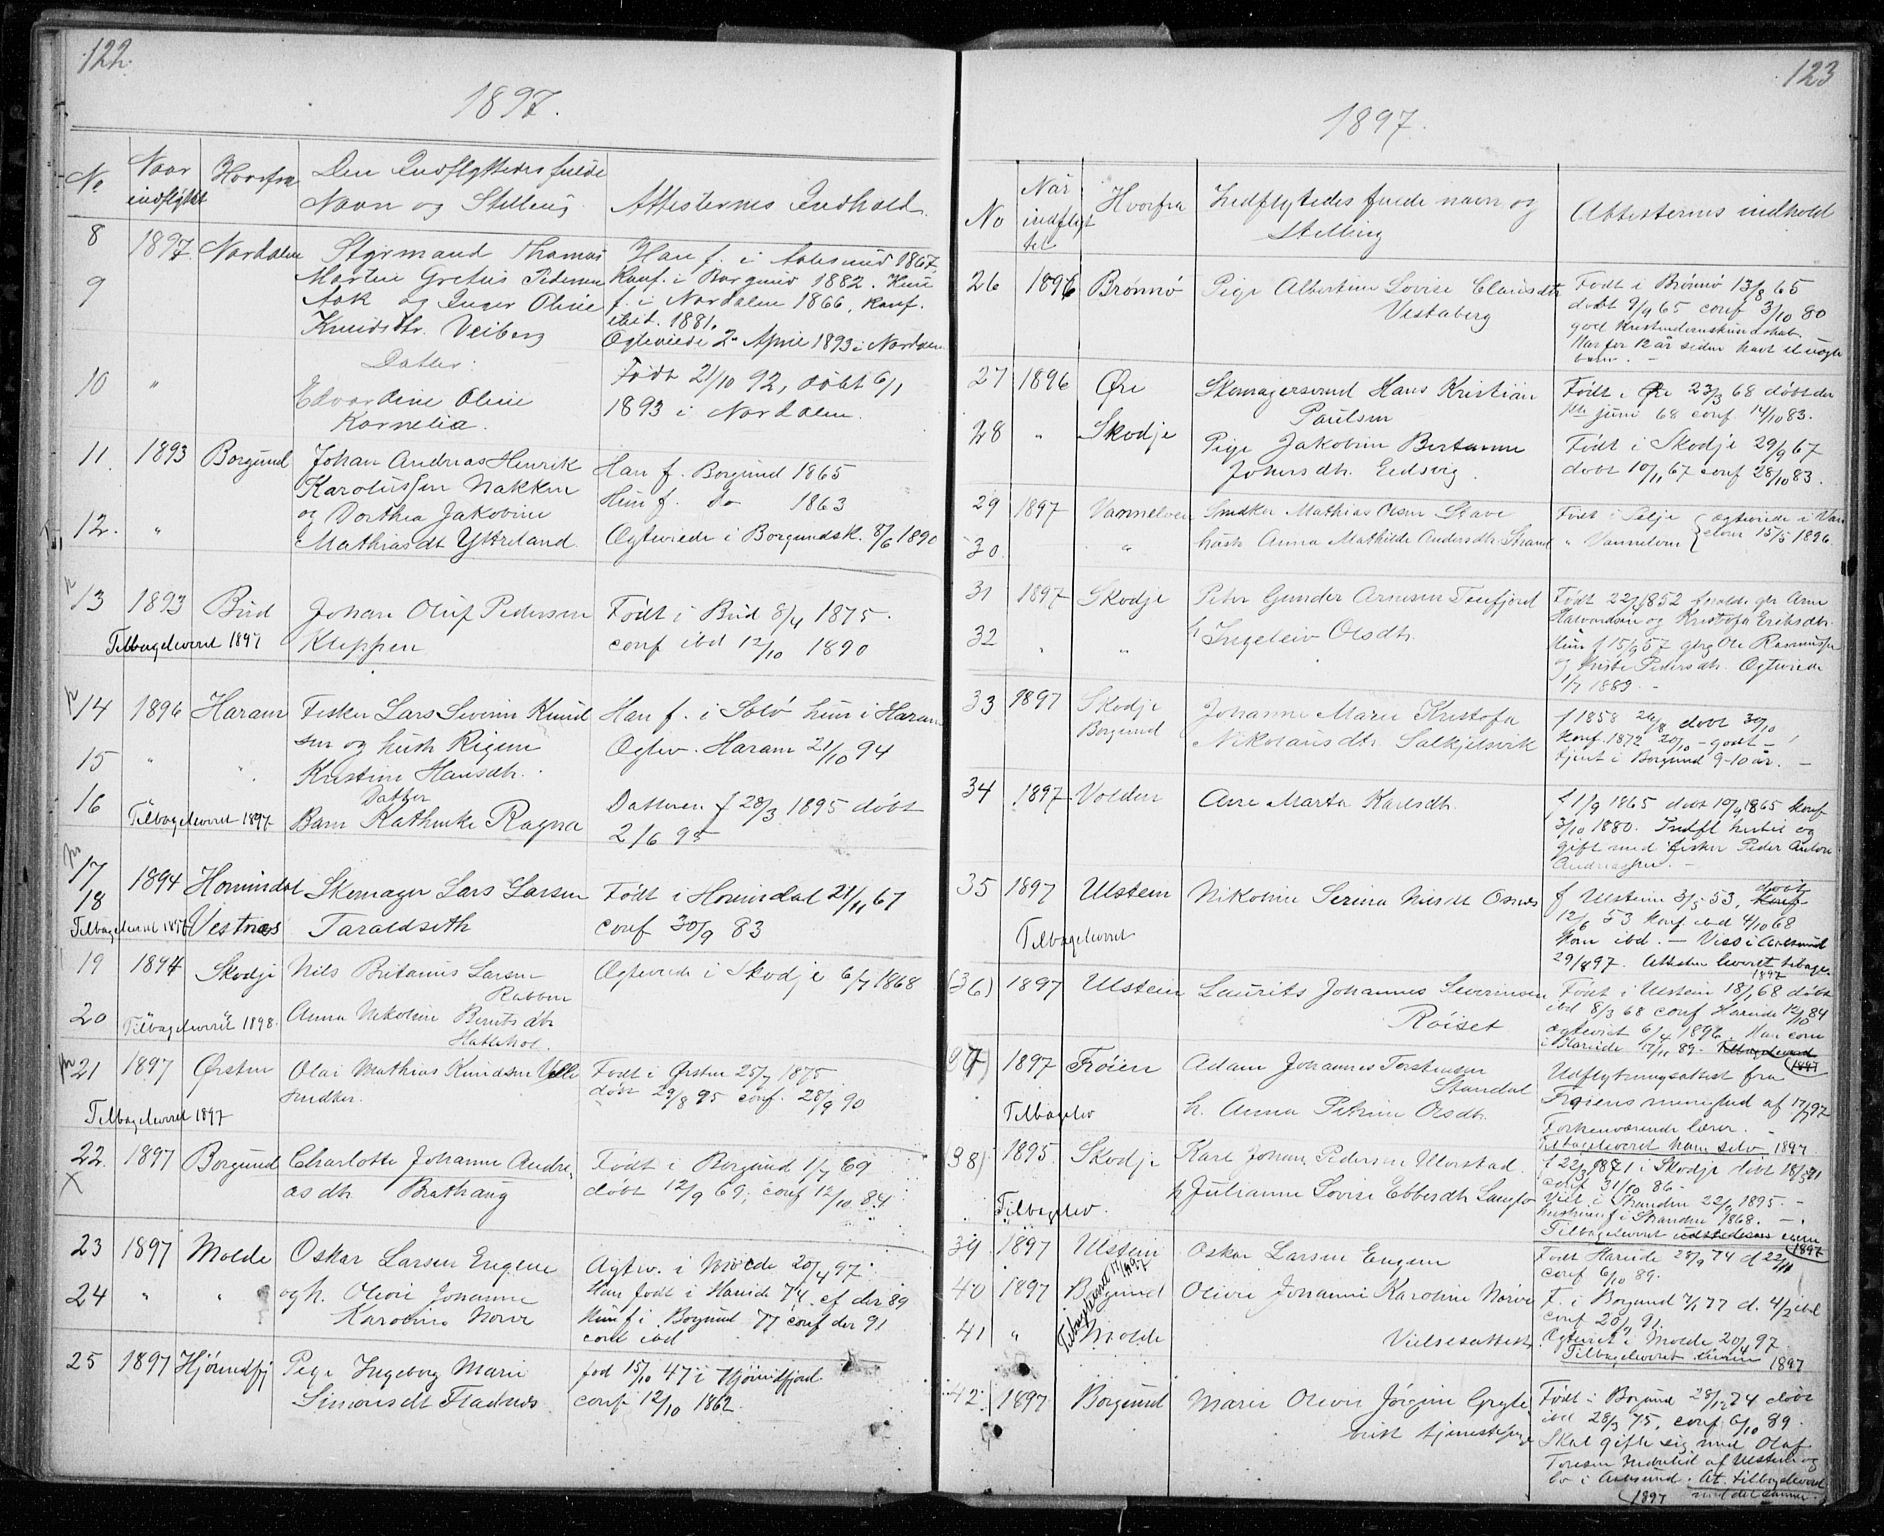 122.
1897.
No
Naar indflyttet
Hvorfra
Den Indflyttedes fulde Navn og Stilling
Attesternes Indhold.
8 1897. Nordalen Styrmand Thomas Han f. i Aalesund 1867,
9 Martin Gretus Pedersen Konf. i Borgund 1882. Hun
Aak og Inger Oline f. i Nordalen 1866, konf.
Knudsdtr. Veiberg ibid. 1881.
Ægteviede 2 April 1893 i Nordalen
Datter:
10 " Edvardine Oline Født 21/10 92, døbt 6/1
Kornelia. 1893 i Nordalen.
11. 1893 Borgund Johan Andreas Henrik Han f. Borgund 1865
Karolussen Nakken Hun f. do 1863
og Dorthea Jakobine
12. " Mathiasdt Ytreland Ægteviede i Borgundsk. 8/6 1890
13 1893 Bud Johan Oluf Pedersen Født i Bud 8/4 1875.
Tilbageleveret 1897 Kleppen conf ibd 12/10 1890
14 1896 Haram Fisker Lars Severin Knud Han f. i hun i Haram
sen og hustr Rigen Ægtev. Haram 21/10 94
15 " " Kristine Hansdtr.
16 Datter
Tilbageleveret 1897 Barn Kathinke Ragna Datteren f 28/3 1895 døbt
2/6 95
17 1894 Hornindal Skomager Lars Larsen Født i Hornindal 21/11 67
18 Taraldseth conf 30/9 83
Vestnæs
19 1894 Skodje Nils Britanus Larsen Ægteviede i Skodje 6/7 1868
Rabben
20 Tilbageleveret 1898. Anna Nikoline Berntsdtr
Hatlehol.
21 1897 Ørsten Olai Mathias Knudsen Født i Ørsten 25/7 1875
Snedker. døbt 29/8 95 conf. 28/9 90
Tilbageleveret 1897
22. 1897 Borgund Charlotte Johanne Andre Født i Borgund 1/7 69
X asdtr Brathaug døbt 12/9 69, conf 12/10 84
23 1897 Molde Oskar Larsen Engene Ægtev. i Molde 20/4 97.
24 " " og h. Olivie Johanne Han født i Hareide 74 cf der 89
Karoline Norve Hun f i Borgund 77 conf der 91
conf ibd
25 1897 Hjørundfj Pige Ingeborg Marie fød 15/10 47 i Hjørundfjord
Simonsdt Fladnes conf 12/10 1862.
123
1897.
No
Når indflyttet
Hvorfra
Indflyttedes fulde navn og Stilling
Attesternes indhold
26 1896 Brønnø Pige Albertine Lovise Clausdtr Født i Brønnø 13/8 65
Vestaberg døbt 9/9 65 conf 3/10 80
god Kristendomskundskab.
Har for 12 år siden havt et uægte
barn. -
27 1896 Øre Skomagersvend Hans Kristian Født i Øre 23/3 68 døbt der
Paulsen 1ste juni 68 conf 14/10 83.
28 " Skodje Pige Jakobine Bertanne Født i Skodje 29/9 67
Johnsdtr. Eidsvig. døbt 10/11 67 conf 28/10 83.
29 1897 Vannelven Snedker Mathias Olsen Stave Født i Selje Ægteviede i Van
30 " hustr Anna Mathilde Andersdtr. Strand " Vannelven elven 15/5 1896.
31 1897 Skodje Peter Gunder Arnesen Tenfjord Født 22/ 1852 forældr. gbr Arne
Halvordsen og Kristofa Eriksdtr.
32 " " h Ingeleiv Olsdtr. Hun f 15/9 57 gbrg Ole Rasmussen
og Pedersdtr. Ægteviede
1/7 1889. -
33 1897 Skodje Johanne Marie Kristofa f 1858 døbt 30/10
Borgund Nikolausdtr Solkjelsvik Konf. 1872 20/10 - godt -
tjent i Borgund 9-10 år. -
34 1897 Volden Ane Marta Karlsdtr. f 1/9 1865 døbt 10/9 1865 konf
3/10 1880. Indfl hertil og
gift med fisker Peder Anton
Andreassen. -
35 1897 Ulstein Nikoline Serina Nilsdt Osnes f Ulstein 3/5 53, døbt
12/6 53 konf ibd 4/10 68
Tilbageleveret Kom ibd. - Viss i Aalesund
29/8 97. Attesten leveret tilbage.
1897
(36) 1897 Ulstein Laurits Johannes Severinsen Født i Ulstein 18/1 68 døbt
Røiset ibd 8/3 68 conf Hareide 12/10 84
ægteviet 6/4 1896. Han com
i Hareide 17/11 89. Tilbageleveret 1897
37) 1897 Frøien Adam Johannes Torstensen Udflytningsattest fra
Standal Frøiens menighed af 17/7 97
Tilbagelev h. Anna Petrine Olsdtr. Forhenværende lærer. -
Tilbageleveret ham selv 1897
38) 1895 Skodje Karl Johan Pedersen Ulorstad f 22/3 1871 i Skodje døbt 18/5 71
conf 31/10 86.-
Tilbagelev. h Julianne Lovise Ebbesdtr Langlo Viet i Stranden 22/9 1895. -
hustruen f i Stranden 1868. -
Tilbageleveret 1897
39 1897 Ulstein Oskar Larsen Engene Født Hareide 28/9 74 d 22/11
conf 6/10 89.
40 1897 Borgund Olivie Johanne Karoline Norve F. i Borgund 7/1 77 d. 4/2 ibd
conf 20/9 91.
41 " Molde Vielsesattest Ægteviet i Molde 20/4 97
Tilbageleveret 17/11 97 Tilbageleveret 1897
42. 1897 Borgund Marie Olivie Jørgine Gryte Født i Borgund 28/12 74 døbt
tjenestepige ibd 28/3 75, conf 6/10 89.
Skal gifte sig med Olaf
af Ulstein og
bo i Aalesund. At. tilbageleveret
1897